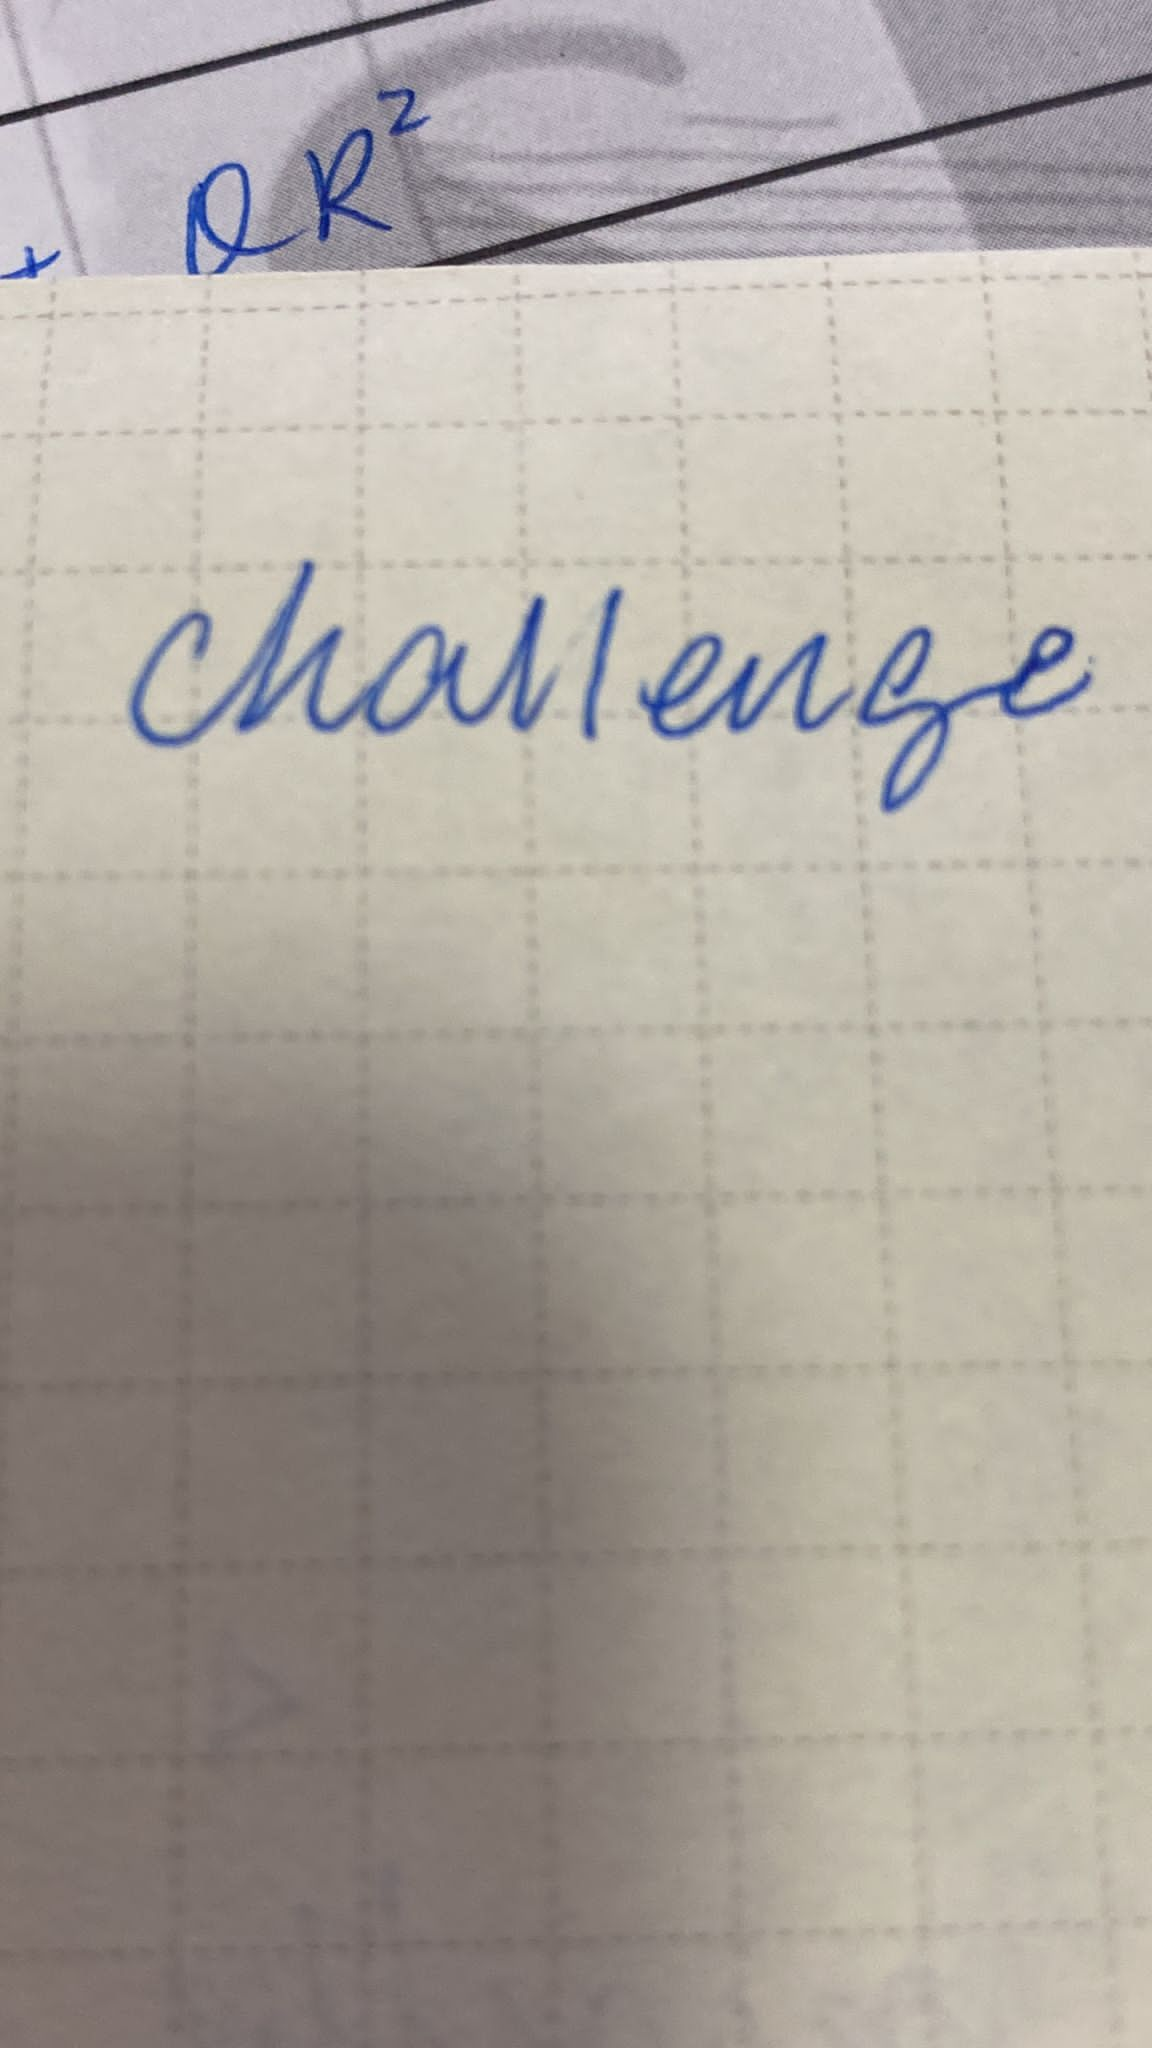 + QR²
challenge